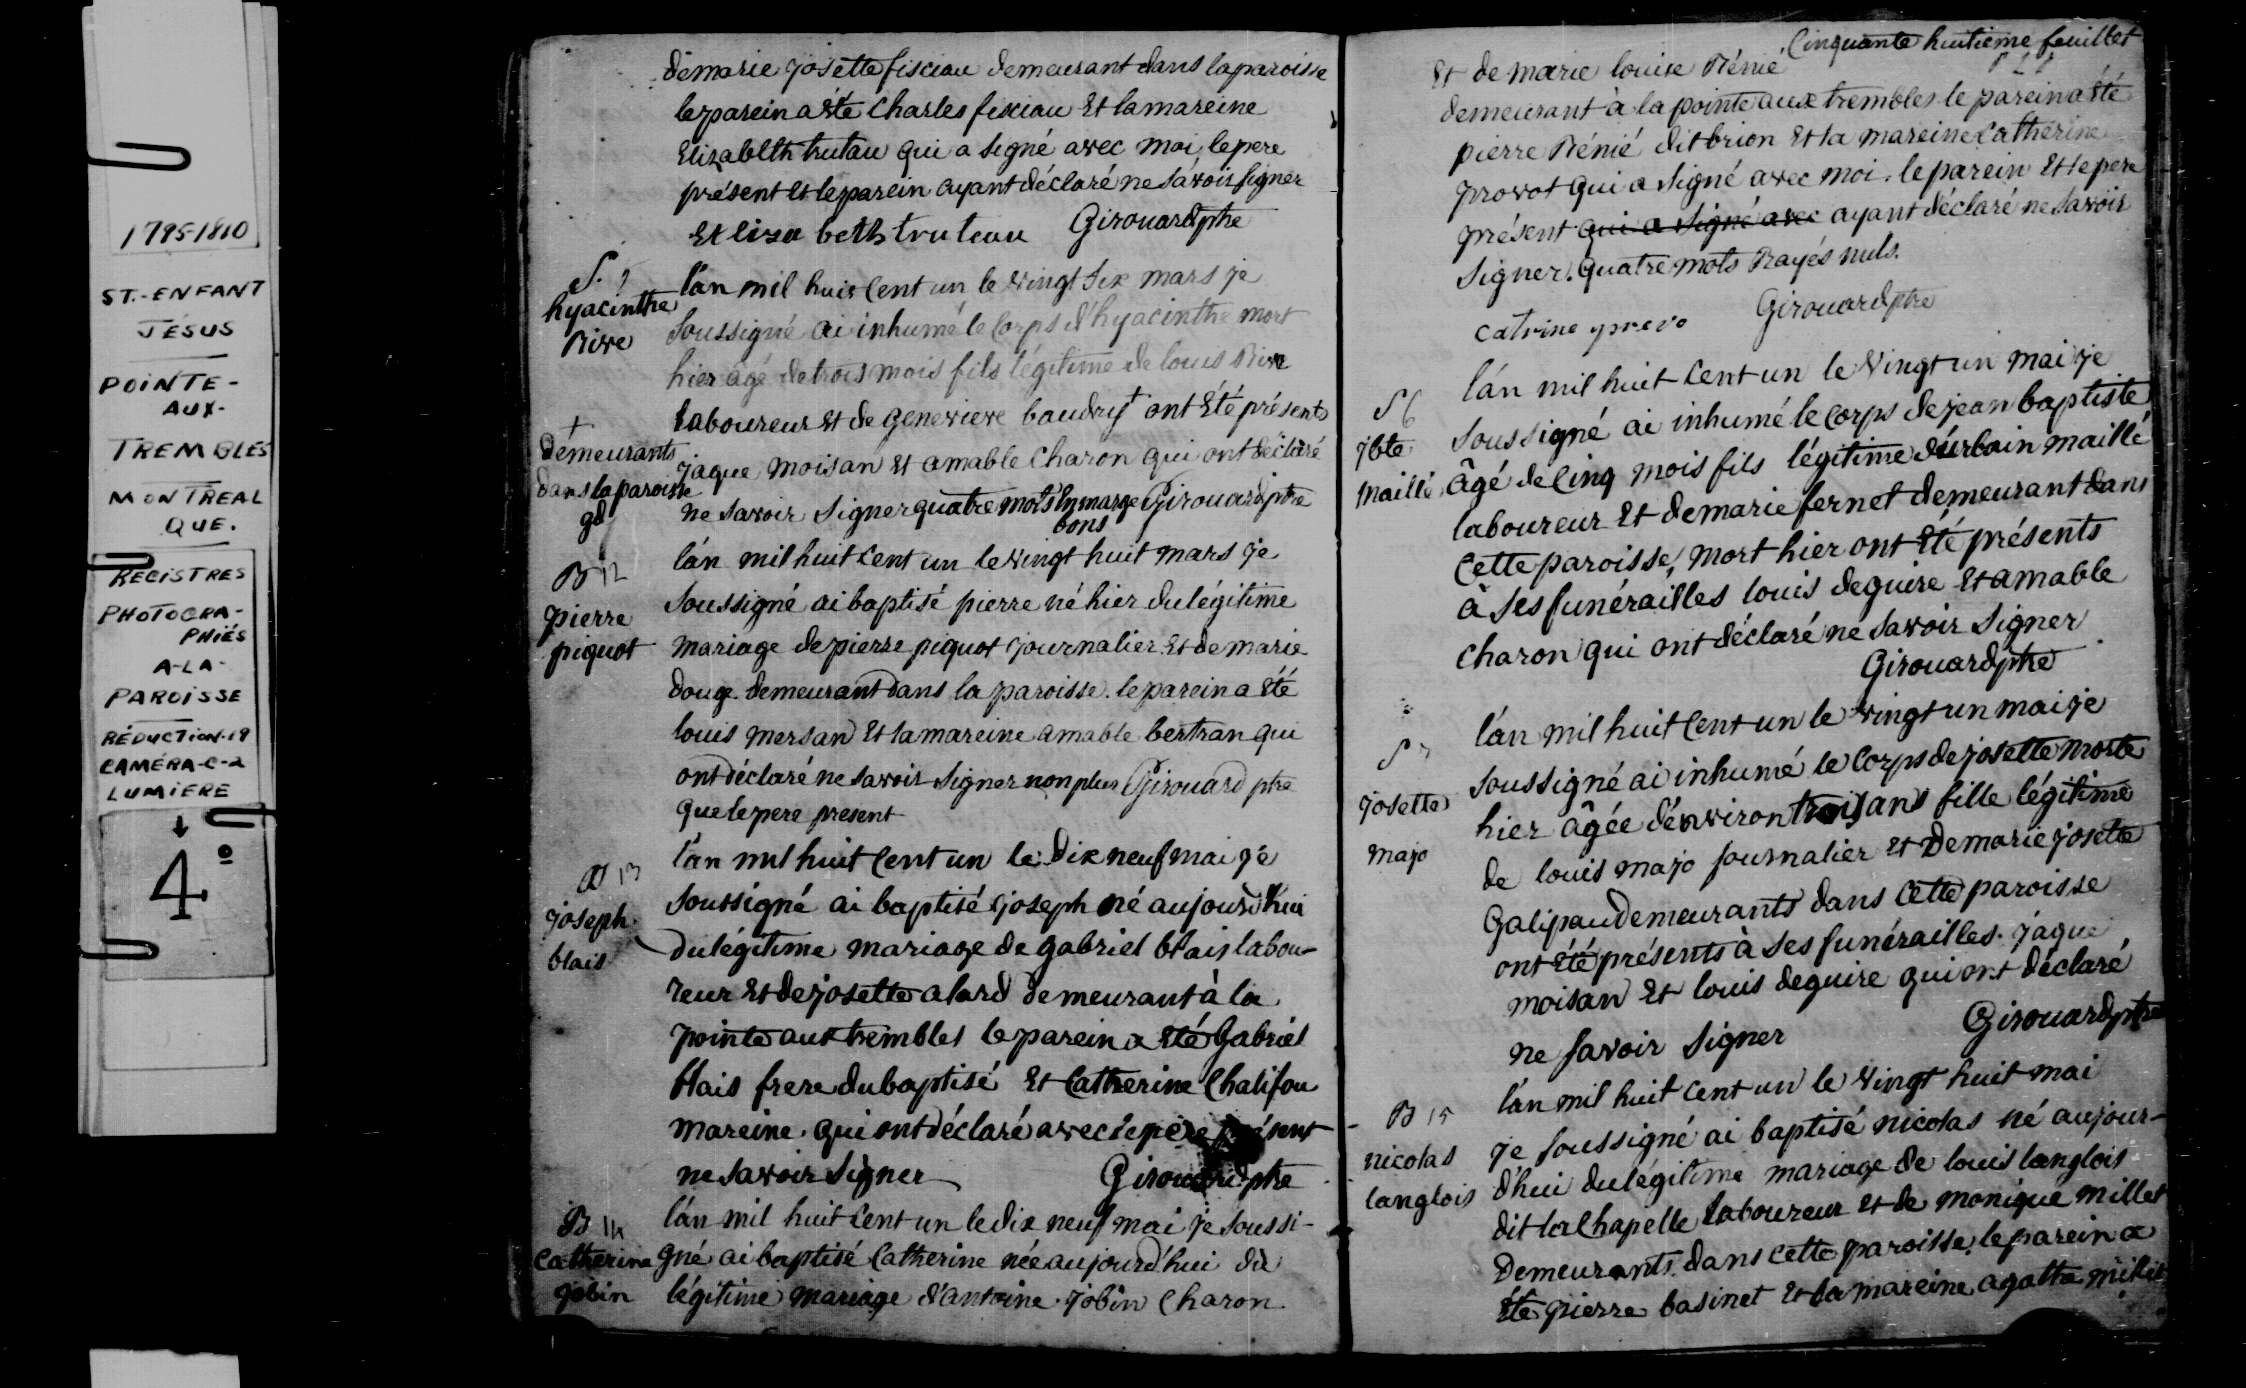 1795-1810
ST.-ENFANT
JÉSUS
POINTE-
AUX-
TREMBLES
MONTRÉAL
QUE.
REGISTRES
PHOTOGRA-
PHIÉS
A-LA-
PAROISSE
RÉDUCTION-19
CAMÉRA-C-2
LUMIÈRE
4º
de marie josette fisciau demeurant dans la paroisse
le parein a été Charles fisciau Et la mareine
Elizabeth trutau qui a signé avec moi, le pere
présent et le parein ayant déclaré ne sávoir signer
Elizabeth truteau Girouard ptre
S. 5
hyacinthe
Rive
l'an mil huit Cent un le vingt six mars je
soussigné ai inhumé le Corps d'hyacinthe mort
hier âgé de trois mois fils légitime de louis Rive
laboureur et de genevieve baudry + ont été présents
+
demeurants
dans la paroisse
gd
jaque moisan et amable Charon qui ont déclaré
ne savoir signer quatre mots En marge Girouard ptre
bons
B 12
pierre
piquot
l'an mil huit Cent un le vingt huit mars je
soussigné ai baptisé pierre né hier du légitime
mariage de pierre piquot journalier Et de marie
douge demeurant dans la paroisse. le parein a été
louis mersan Et la mareine amable bertran qui
ont déclaré ne savoir signer non plus Girouard ptre
que le pere present
B 13
joseph
blais
l'an mil huit Cent un le dix neuf mai je
soussigné ai baptisé joseph né aujourd'hui
du légitime mariage de gabriel blais labou-
reur Et de josette alard demeurant à la
pointe aux trembles le parein a été gabriel
blais frere du baptisé Et Catherine Chalifou
mareine. qui ont déclaré avec le pere présent
ne savoir signer Girouard ptre
B 14
Catherine
jobin
l'an mil huit Cent un le dix neuf mai je soussi-
gné ai baptisé Catherine née aujourd'hui du
légitime mariage d'antoine jobin Charon
Cinquante huitieme feuillet
Et de marie louise Rénié
demeurant à la pointe aux trembles le parein a été
pierre Rénié dit brion Et la mareine Catherine
provot qui a signé avec moi. le parein Et le pere
présent qui a signé avec ayant déclaré ne savoir
signer. quatre mots Rayés nuls.
Catrine prevo Girouard ptre
S 6
jbte
maillé
l'an mil huit Cent un le vingt un mai je
soussigné ai inhumé le Corps de jean baptiste
âgé de Cinq mois fils légitime d'urbain maillé
laboureur Et de marie fernet demeurant dans
Cette paroisse, mort hier ont été présents
à ses funérailles louis deguire Et amable
Charon qui ont déclaré ne savoir signer
Girouard ptre
S 7
josette
majo
l'an mil huit Cent un le vingt un mai je
soussigné ai inhumé le Corps de josette morte
hier âgée d'environ trois ans fille légitime
de louis majo journalier Et de marie josette
Galipau demeurants dans Cette paroisse
ont été présents à ses funérailles. jaque
moisan Et louis deguire qui ont déclaré
ne savoir signer Girouard ptre
B 15
nicolas
langlois
l'an mil huit Cent un le vingt huit mai
je soussigné ai baptisé nicolas né aujour-
d'hui du légitime mariage de louis langlois
dit la Chapelle laboureur Et de monique millet
demeurants dans Cette paroisse, le parein a
été pierre basinet Et la mareine agathe